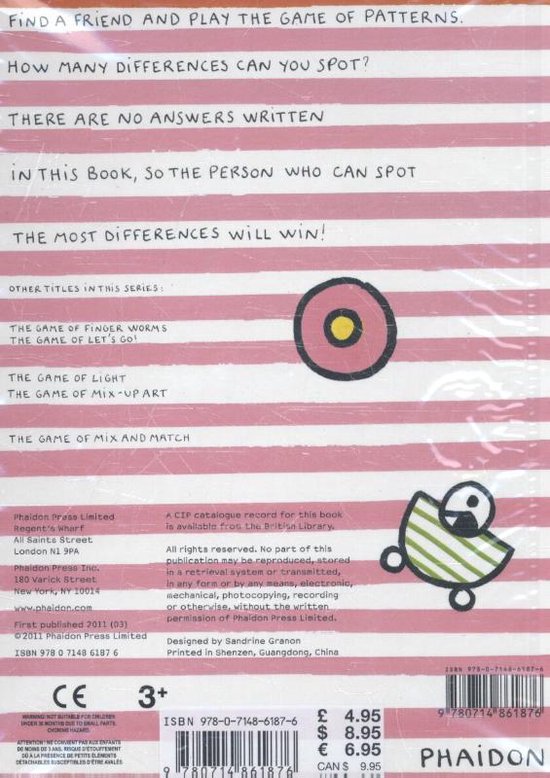 FIND A FRIEND AND PLAY THE GAME OF PATTERNS.
HOW MANY DIFFERENCES CAN YOU SPOT?
THERE ARE NO ANSWERS WRITTEN
IN THIS BOOK, SO THE PERSON WHO CAN SPOT
THE MOST DIFFERENCES WILL WIN!
OTHER TITLES IN THIS SERIES:
THE GAME OF FINGER WORMS
THE GAME OF LET'S GO!
THE GAME OF LIGHT
THE GAME OF MIX-UP ART
THE GAME OF MIX AND MATCH
Phaidon Press Limited
Regent's Wharf
All Saints Street
London N1 9PA
Phaidon Press Inc.
180 Varick Street
New York, NY 10014
www.phaidon.com
First published 2011 (03)
© 2011 Phaidon Press Limited
ISBN 978 0 7148 6187 6
A CIP catalogue record for this book
is available from the British Library.
All rights reserved. No part of this
publication may be reproduced, stored
in a retrieval system or transmitted,
in any form or by any means, electronic,
mechanical, photocopying, recording
or otherwise, without the written
permission of Phaidon Press Limited.
Designed by Sandrine Granon
Printed in Shenzen, Guangdong, China
ISBN 978-0-7148-6187-6
9 780714 861876
CE 3+
WARNING! NOT SUITABLE FOR CHILDREN
UNDER 36 MONTHS DUE TO SMALL PARTS.
CHOKING HAZARD.
ATTENTION! NE CONVIENT PAS AUX ENFANTS
DE MOINS DE 3 ANS. RISQUE D'ÉTOUFFEMENT
DÛ À LA PRÉSENCE DE PETITS ÉLÉMENTS
DÉTACHABLES SUSCEPTIBLES D'ÊTRE AVALÉS.
ISBN 978-0-7148-6187-6
9 780714 861876
£ 4.95
$ 8.95
€ 6.95
CAN $ 9.95
PHAIDON